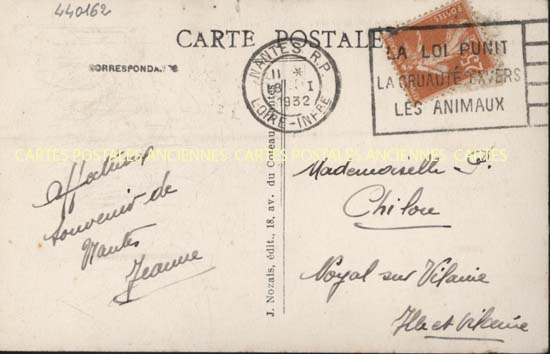 440162
CARTE POSTALE
CORRESPONDA
NANTES R.P.
11 *
18 I
1932
LOIRE-INFRE
LA LOI PUNIT
LA CRUAUTÉ ENVERS
LES ANIMAUX
CARTES POSTALES ANCIENNES CARTES POSTALES ANCIENNES CARTES
Affectueux
souvenir de
Nantes
Jeanne
J. Nozais, édit., 18, av. du Coteau
Mademoiselle P.
Chilou
Noyal sur Vilaine
Ille et Vilaine